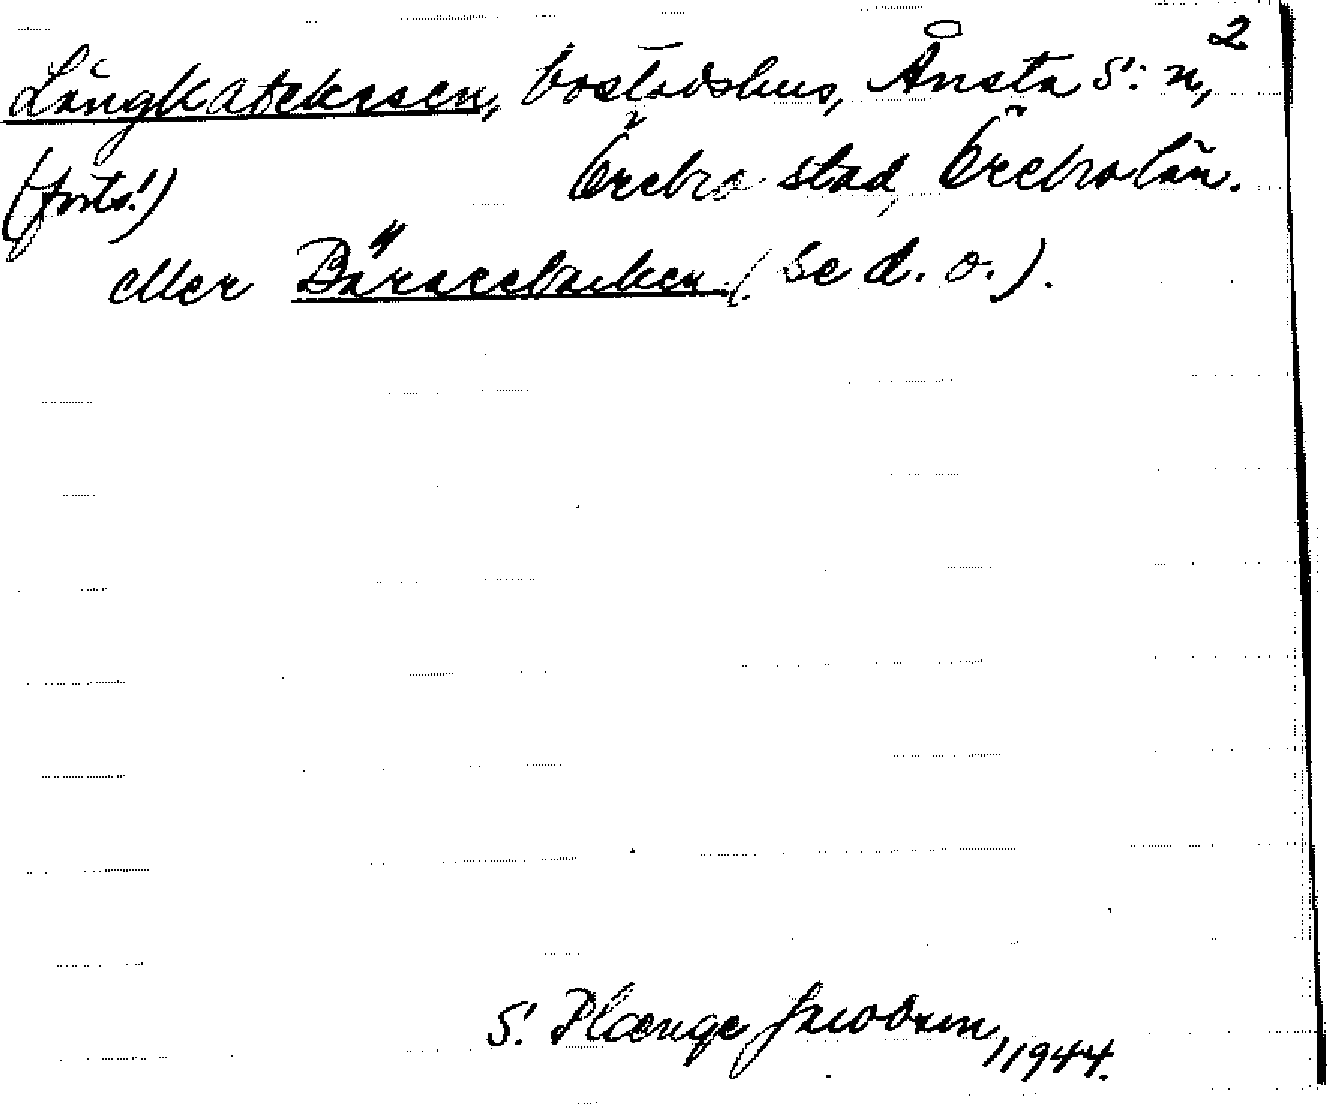 2
Långkatekesen, bostadshus, Ånsta S:n,
(forts.) Örebro stad, Örebro län.
eller Bärarebacken (se d. o.).
S. Plænge Jacobson, 1944.